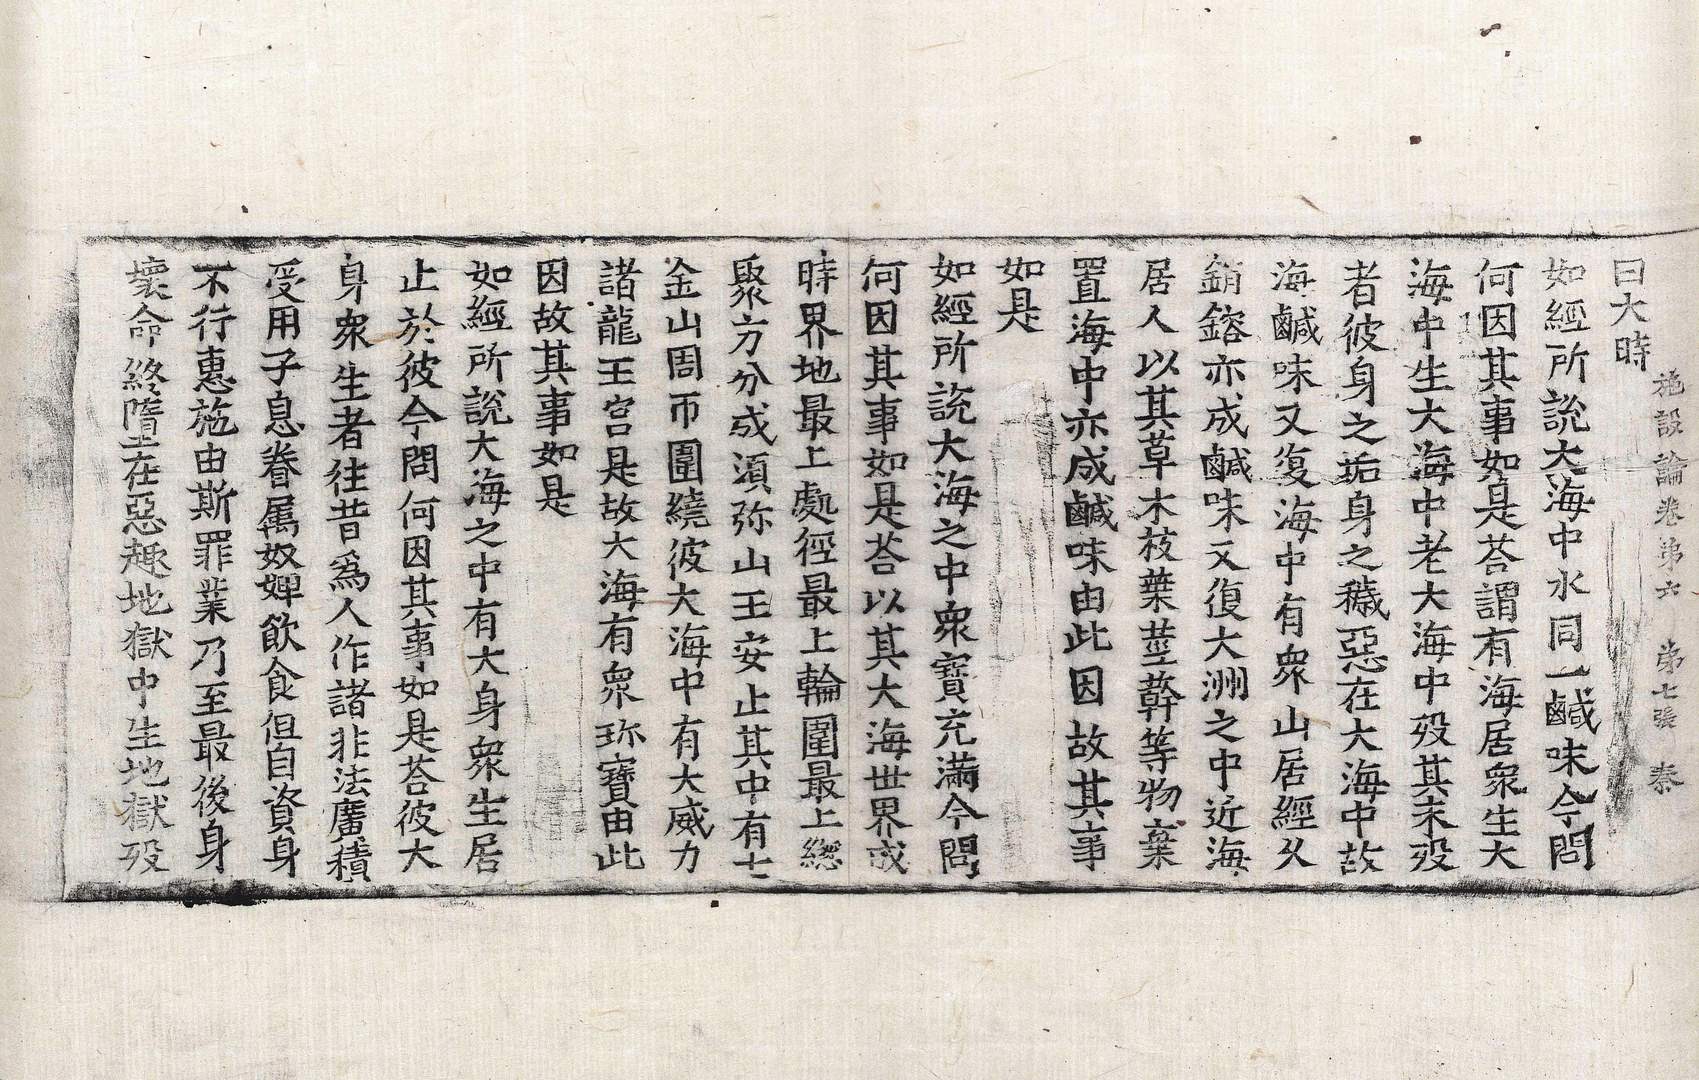 施設論卷第六　第七張　泰
曰大時
如經所說大海中水同一鹹味今問
何因其事如是荅謂有海居衆生大
海中生大海中老大海中歿其未歿
者彼身之垢身之穢惡在大海中故
海鹹味又復海中有衆山居經久
銷鎔亦成鹹味又復大洲之中近海
居人以其草木枝葉莖幹等物棄
置海中亦成鹹味由此因故其事
如是
如經所說大海之中衆寶充滿今問
何因其事如是荅以其大海世界成
時界地最上處徑最上輪圍最上緫
聚方分成湏弥山王安止其中有七
金山周帀圍繞彼大海中有大威力
諸龍王宮是故大海有衆珎寶由此
因故其事如是
如經所說大海之中有大身衆生居
止於彼今問何因其事如是荅彼大
身衆生者往昔爲人作諸非法廣積
受用子息眷屬奴婢飲食但自資身
不行惠施由斯罪業乃至最後身
壞命終墮在惡趣地獄中生地獄歿